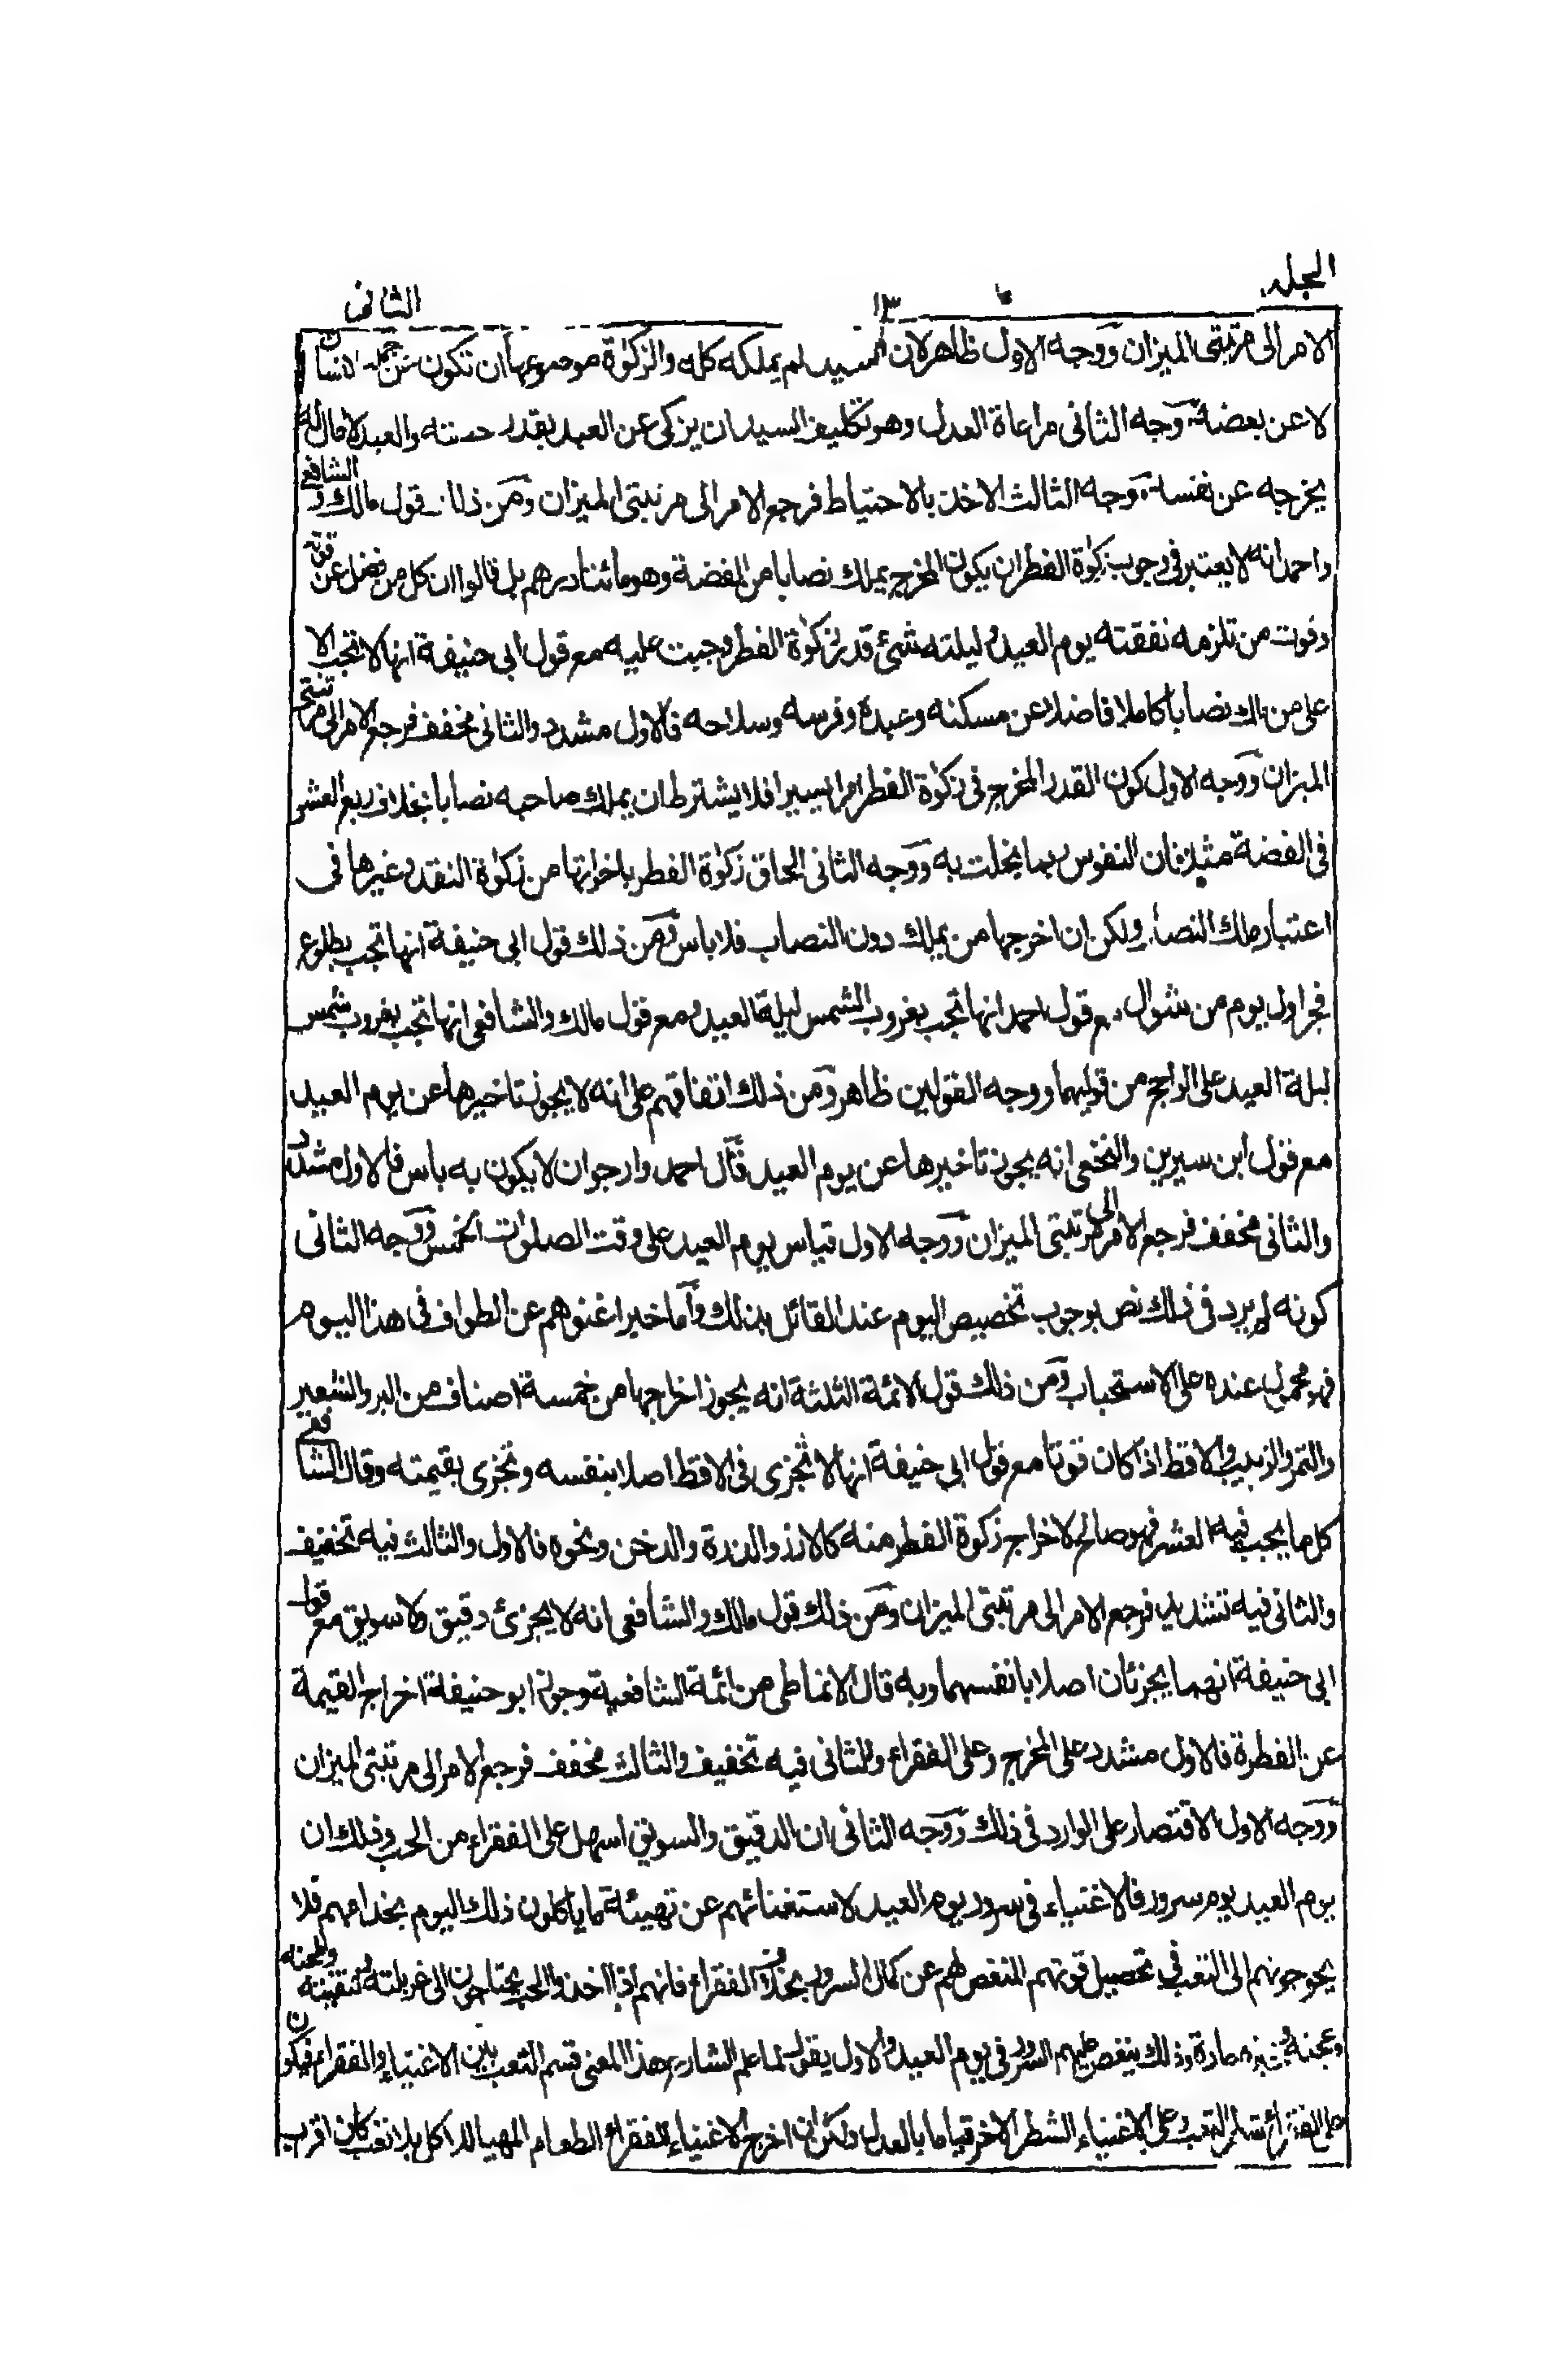 المجلد
١٣
الثانى
الامر الى مرتبتى الميزان ووجه الاول ظاهر لان السيد لم يملكه كله والزكوة موضوعها ان تكون عن جملة انسان
لا عن بعضه ووجه الثانى مراعاة العدل وهو تكليف السيد ان يزكى عن العبد بقدر حصته والعبد لا مال له
يخرجه عن نفسه ووجه الثالث الاخذ بالاحتياط فرجع الامر الى مرتبتى الميزان ومن ذلك قول مالك والشافعى
واحمد انه لا يعتبر فى وجوب زكوة الفطر ان يكون المخرج يملك نصابا من الفضة وهو مائتا درهم بل قالوا ان كل من فضل عن قوته
وقوت من تلزمه نفقته يوم العيد وليلته شئ قدر زكوة الفطر وجبت عليه مع قول ابى حنيفة انها لا تجب الا
على من ملك نصابا كاملا فاضلا عن مسكنه وعبده وفرسه وسلاحه فالاول مشدد والثانى مخفف فرجع الامر الى مرتبتى
الميزان ووجه الاول كون القدر المخرج فى زكوة الفطر امرا يسيرا فلا يشترط ان يملك صاحبه نصابا بخلاف ربع العشر
فى الفضة مثلا فان النفوس ربما بخلت به ووجه الثانى الحاق زكوة الفطر باخواتها من زكوة النقد وغيرها فى
اعتبار ملك النصاب ولكن ان اخرجها من يملك دون النصاب فلا باس ومن ذلك قول ابى حنيفة انها تجب بطلوع
فجر اول يوم من شوال مع قول احمد انها تجب بغروب الشمس ليلة العيد ومع قول مالك والشافعى انها تجب بغروب شمس
ليلة العيد على الراجح من قوليهما ووجه القولين ظاهر ومن ذلك اتفاقهم على انه لا يجوز تاخيرها عن يوم العيد
مع قول ابن سيرين والنخعى انه يجوز تاخيرها عن يوم العيد قال احمد وارجو ان لا يكون به باس فالاول مشدد
والثانى مخفف فرجع الامر الى مرتبتى الميزان ووجه الاول قياس يوم العيد على وقت الصلوات الخمس ووجه الثانى
كونه لم يرد فى ذلك نص بوجوب تخصيص اليوم عند القائل بذلك واما خبر اغنوهم عن الطواف فى هذا اليوم
فهو محمول عنده على الاستحباب ومن ذلك قول الائمة الثلثة انه يجوز اخراجها من خمسة اصناف من البر والشعير
والتمر والزبيب والاقط اذا كان قوتا مع قول ابى حنيفة انها لا تجزى فى الاقط اصلا بنفسه وتجزى بقيمته وقال الشافعى
كل ما يجب فيه العشر فهو صالح لاخراج زكوة الفطر منه كالارز والذرة والدخن ونحوه فالاول والثالث فيه تخفيف
والثانى فيه تشديد فرجع الامر الى مرتبتى الميزان ومن ذلك قول مالك والشافعى انه لا يجزئ دقيق ولا سويق مع قول
ابى حنيفة انهما يجزئان اصلا بانفسهما وبه قال الانماطى من ائمة الشافعية وجوز ابو حنيفة اخراج القيمة
عن الفطرة فالاول مشدد على المخرج وعلى الفقراء والثانى فيه تخفيف والثالث مخفف فرجع الامر الى مرتبتى الميزان
ووجه الاول الاقتصار على الوارد فى ذلك ووجه الثانى ان الدقيق والسويق اسهل على الفقراء من الحب وذلك ان
يوم العيد يوم سرور فالاغنياء فى سرور يوم العيد لاستغنائهم عن تهيئة ما ياكلون ذلك اليوم بخدامهم فلا
يحوجونهم الى التعب فى تحصيل قوتهم المنغص لهم عن كمال السرور بخلاف الفقراء فانهم اذا اخذوا الحب يحتاجون الى غربلته وتنقيته وطحنه
وعجنه وخبزه عادة وذلك ينغص عليهم السرور فى يوم العيد والاول يقول لما علم الشارع هذا المعنى قسم التعب بين الاغنياء والفقراء فيكون
على الفقراء شطر التعب وعلى الاغنياء الشطر الاخر قياما بالعدل ولكن ان اخرج الاغنياء للفقراء الطعام المهيا للاكل بلا تعب كان اقرب